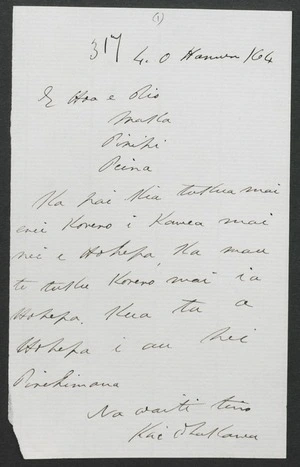 (1)
317
4. O Hanuere 64
E Hoa e Rio
maka
Pirihi
Peina
Ka pai Kia tukua mai
enei Korero i Kawea mai
nei e Hohepa, Ka mau
te tuku Korero mai ia
Hohepa. Kua tu a
Hohepa i au hei
Pirihimana
Na waiti
Kai